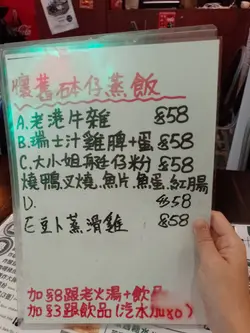 懷舊砵仔蒸飯
A.老港牛雜 $58
B.瑞士汁雞脾+蛋 $58
C.大小姐車仔粉 $58
燒鴨,叉燒,魚片,魚蛋,紅腸
D. $58
E豆卜蒸滑雞 $58
加$8跟老火湯+飲品
加$3跟飲品(汽水